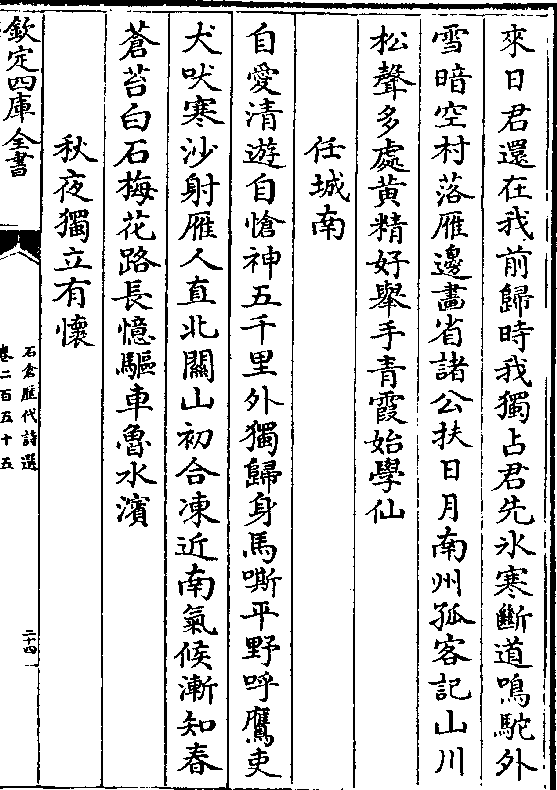 來日君還在我前歸時我獨占君先氷寒斷道鳴駝外
雪暗空村落雁邊畫省諸公扶日月南州孤客記山川
松聲多處黄精好舉手青霞始學仙
任城南
自愛清遊自愴神五千里外獨歸身馬嘶平野呼鷹吏
犬吠寒沙射雁人直北關山初合凍近南氣候漸知春
蒼苔白石梅花路長憶驅車魯水濱
秋夜獨立有懷
欽定四庫全書
石倉歴代詩選
卷二百五十五
二十四